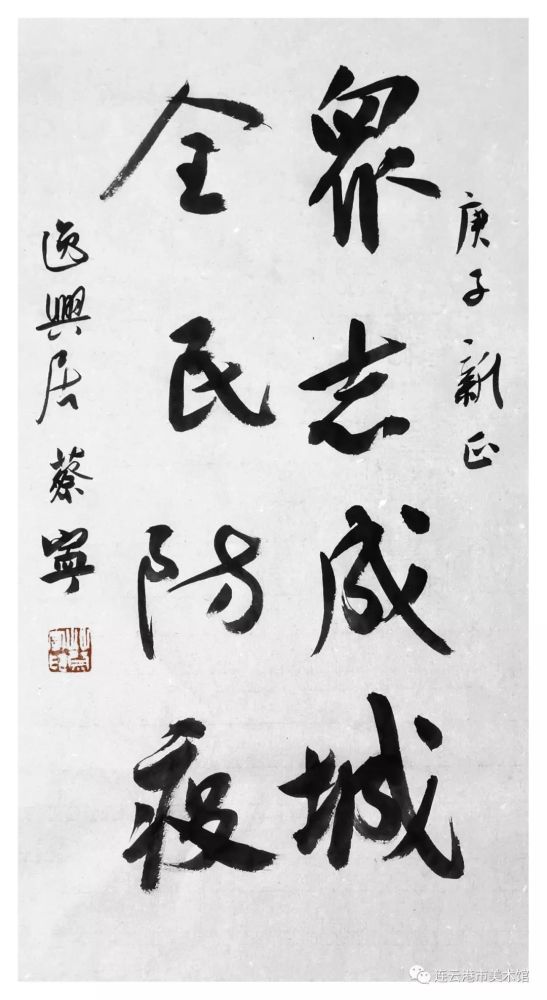 庚子新正
眾志成城
全民防疫
逸興居蔡寧
连云港市美术馆